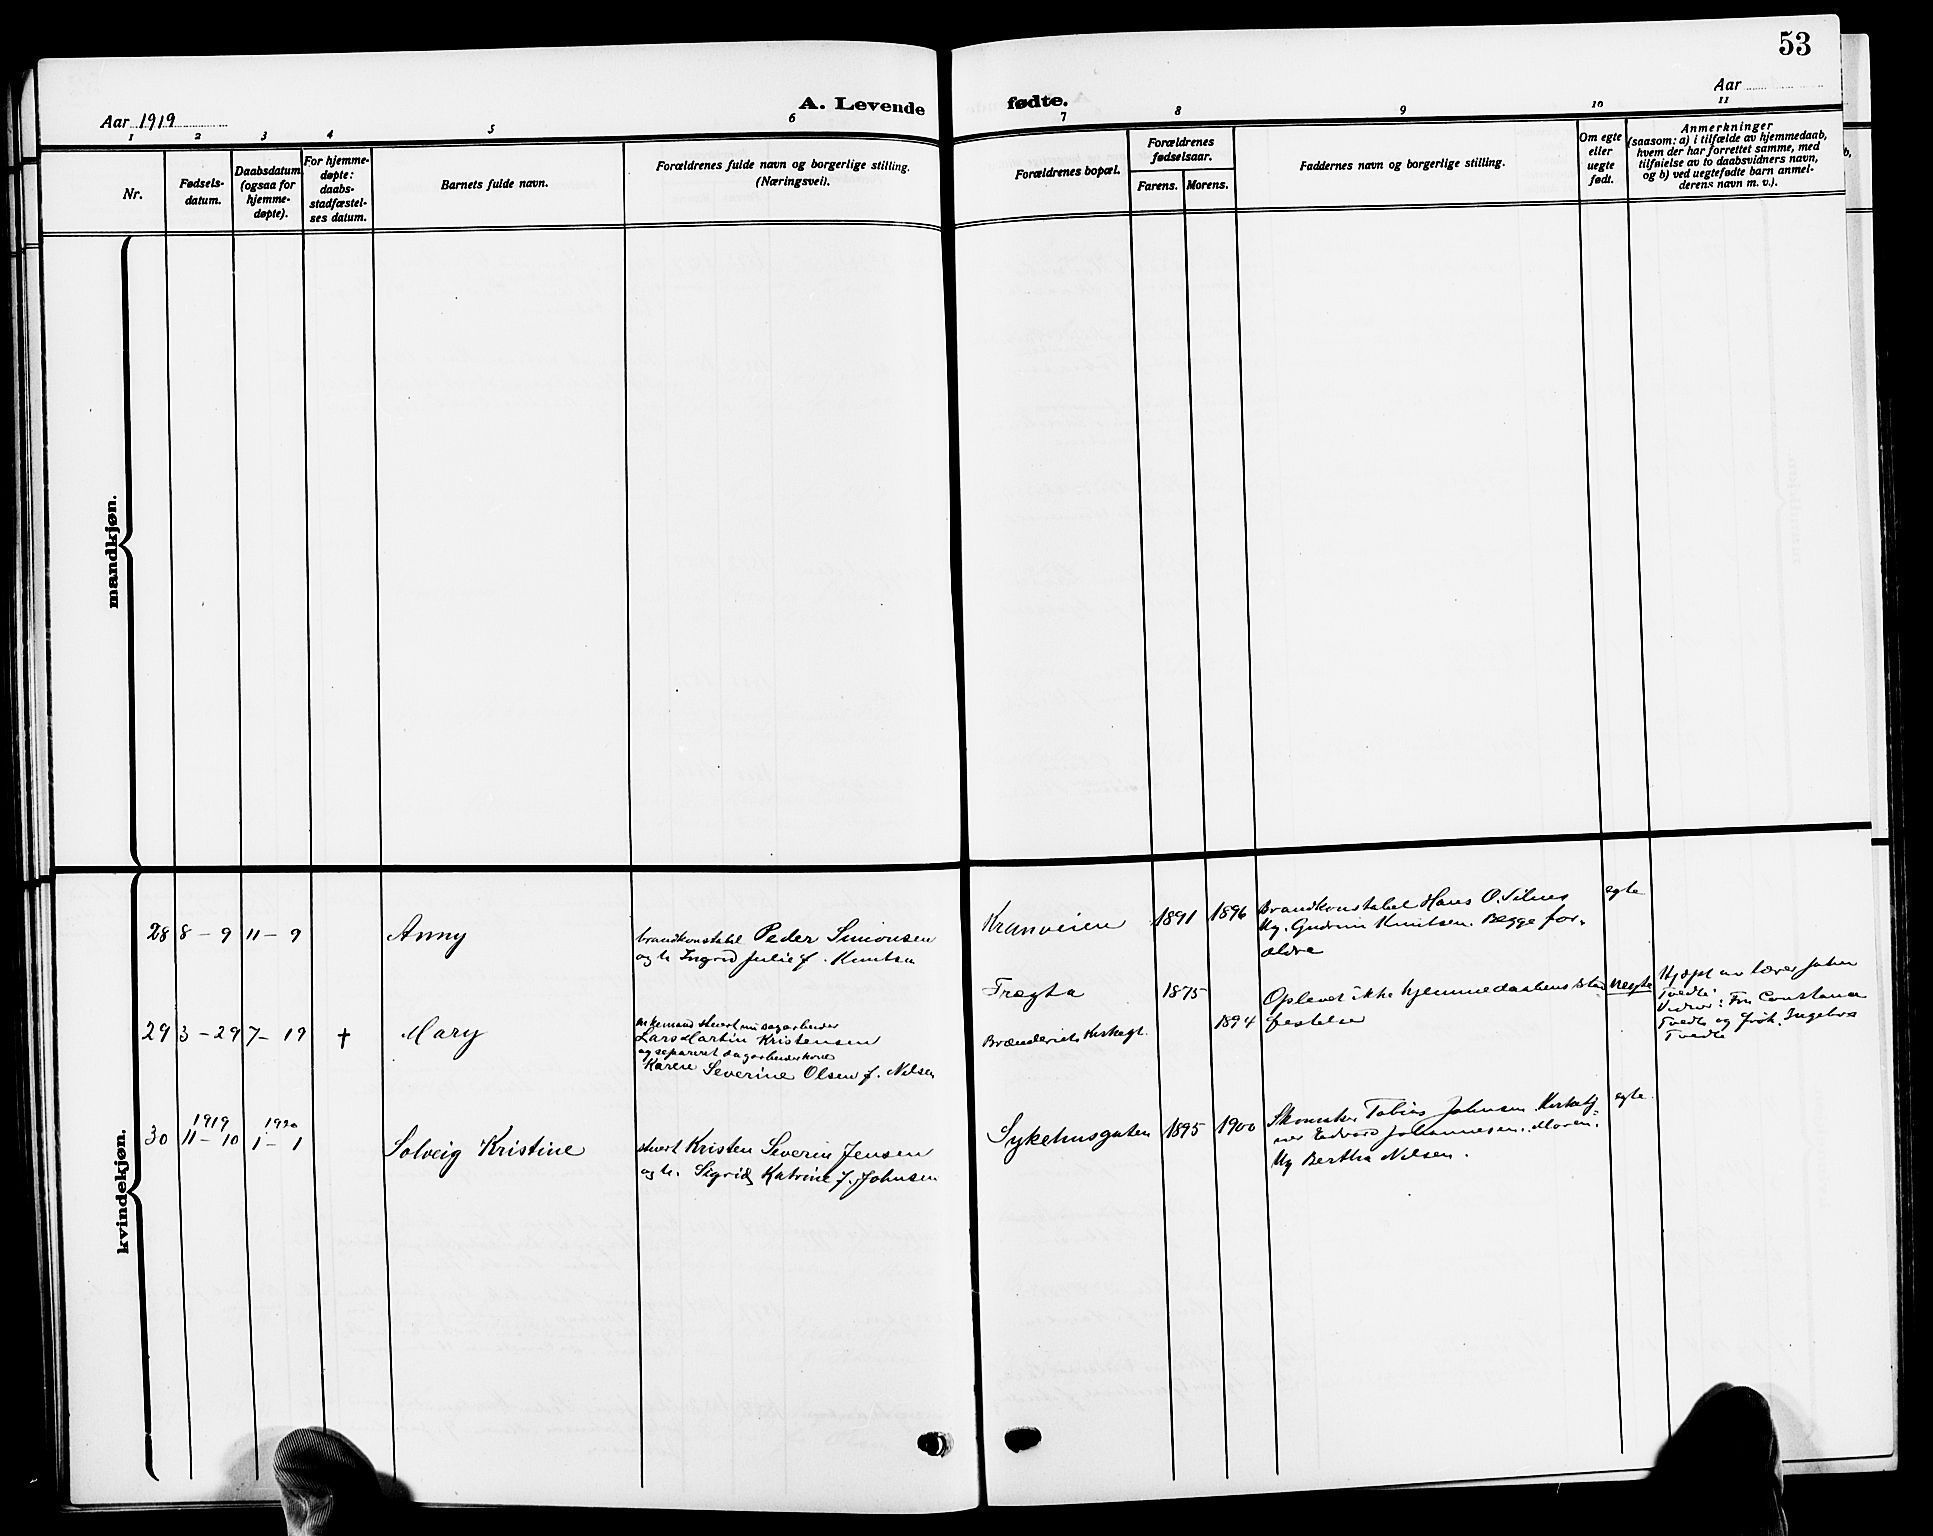 53
A. Levende fødte.
Aar 1919
Aar
1 2 3 4 5 6 7 8 9 10 11
Nr.
Fødsels-
datum.
Daabsdatum
(ogsaa for
hjemme-
døpte).
For hjemme-
døpte:
daabs-
stadfæstel-
ses datum.
Barnets fulde navn.
Forældrenes fulde navn og borgerlige stilling.
(Næringsvei).
Forældrenes bopæl.
Forældrenes
fødselsaar.
Farens. Morens.
Faddernes navn og borgerlige stilling.
Om egte
eller
uegte
født.
Anmerkninger
(saasom: a) i tilfælde av hjemmedaab,
hvem der har forrettet samme, med
tilføielse av to daabsvidners navn,
og b) ved uegtefødte barn anmel-
derens navn m. v.).
mandkjøn.
kvindekjøn.
28 8-9 11-9 Anny
brandkonstabel Peder Simonsen
og h. Ingrid Julie f. Knutsen
Kranveien 1891 1896
Brandkonstabel Hans O.
Ug. Gudrun Knutsen. Begge for-
ældre
egte
29 3-29 7-19 † Mary
Lars Martin Kristensen
og separeret dagarbeiderkone
Karen Severine Olsen f. Nilsen
Tregta 1875
1894
Oplevet ikke hjemmedaabens stad
festelse
uegte
Hjdøpt av lærer Johan
Tvedte
Vidner: Fru Constance
Tvedte og frøk. Ingeborg
Tvedte
30 1919 11-10 1920 1-1 Solveig Kristine
stuert Kristen Severin Jensen
og h. Sigrid Katrine f. Johnsen
Sykehusgaten 1895 1900
Skomaker Tobias Johnsen.
Edvard Johannesen. Moren.
Ug Bertha Nilsen.
egte.